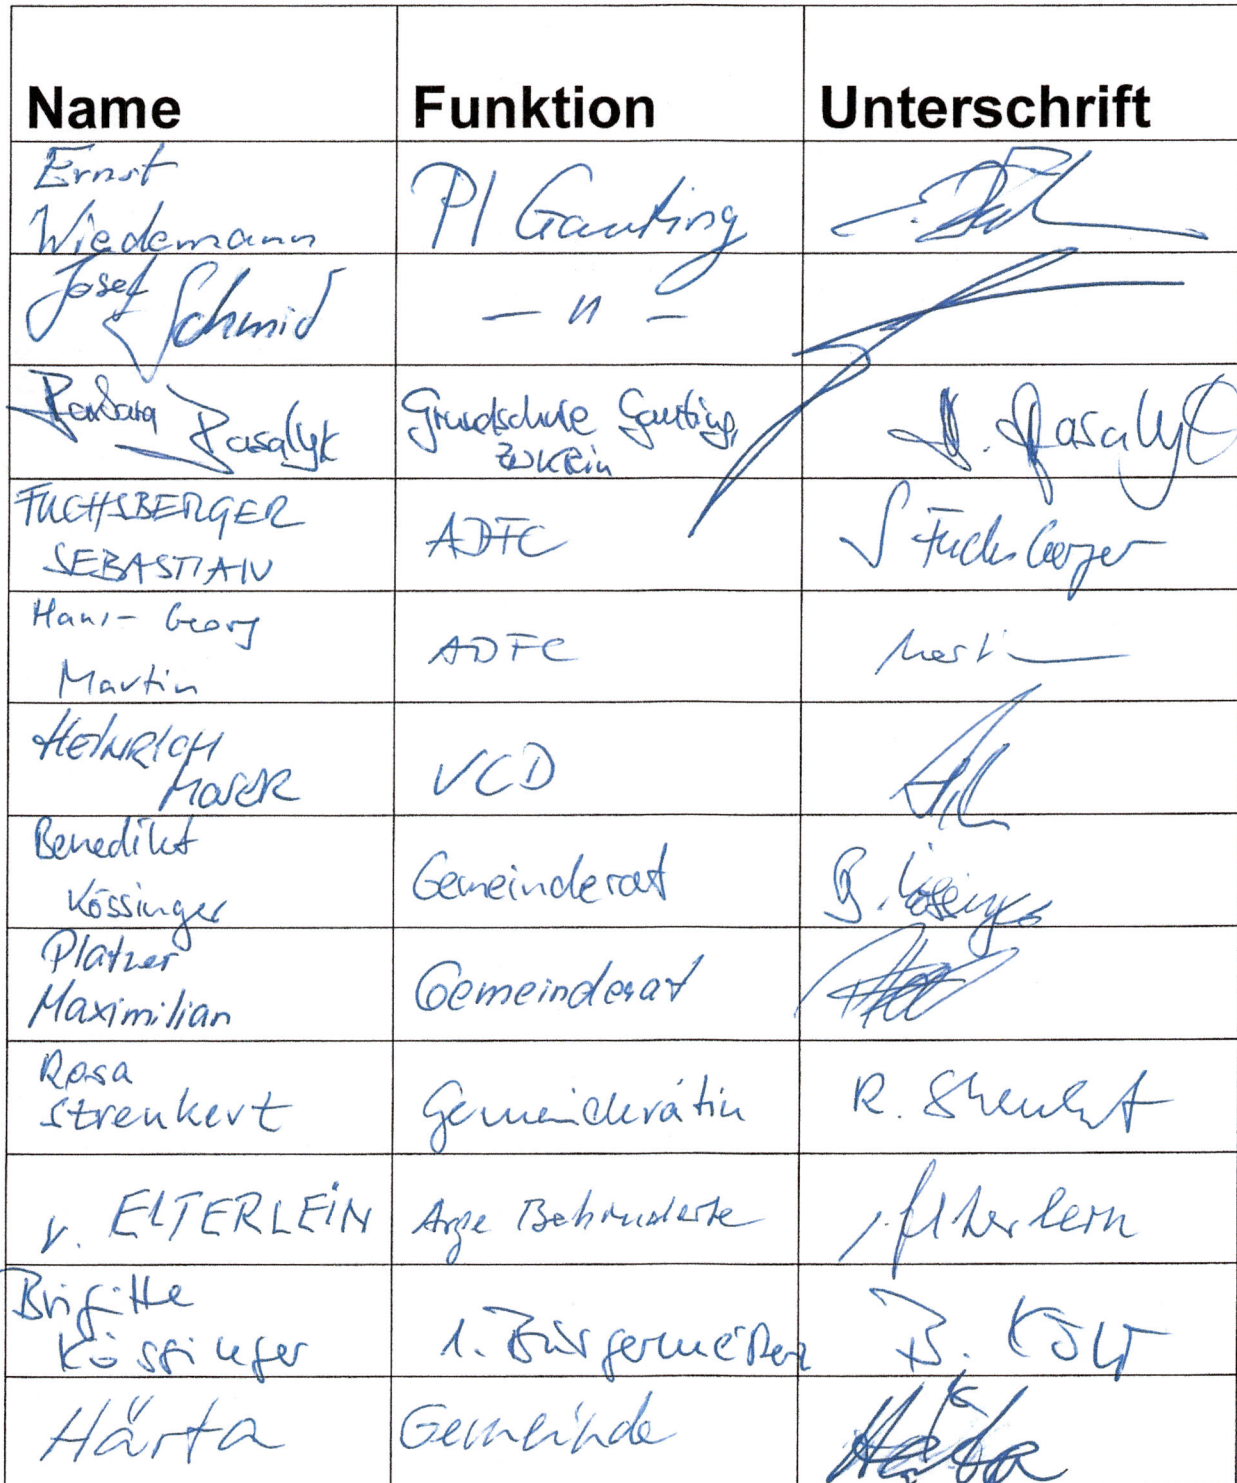 Name Funktion Unterschrift
Ernst
Wiedemann
PI Gauting
Josef
Schmid
— 〃 —
Barbara
Pasalyk
Grundschule Gauting,
B. Pasalyk
FUCHSBERGER
SEBASTIAN
ADFC
S Fuchsberger
Hans-Georg
Martin
ADFC
Martin
HEINRICH
MOSER
VCD
Benedikt
Kössinger
Gemeinderat
B. Kössinger
Platzer
Maximilian
Gemeinderat
Rosa
Strenkert
Gemeinderätin
R. Strenkert
v. ELTERLEIN
Arge Behinderte
v. Elterlein
Brigitte
Kössinger
1. Bürgermeisterin
Härta
Gemeinde
Härta